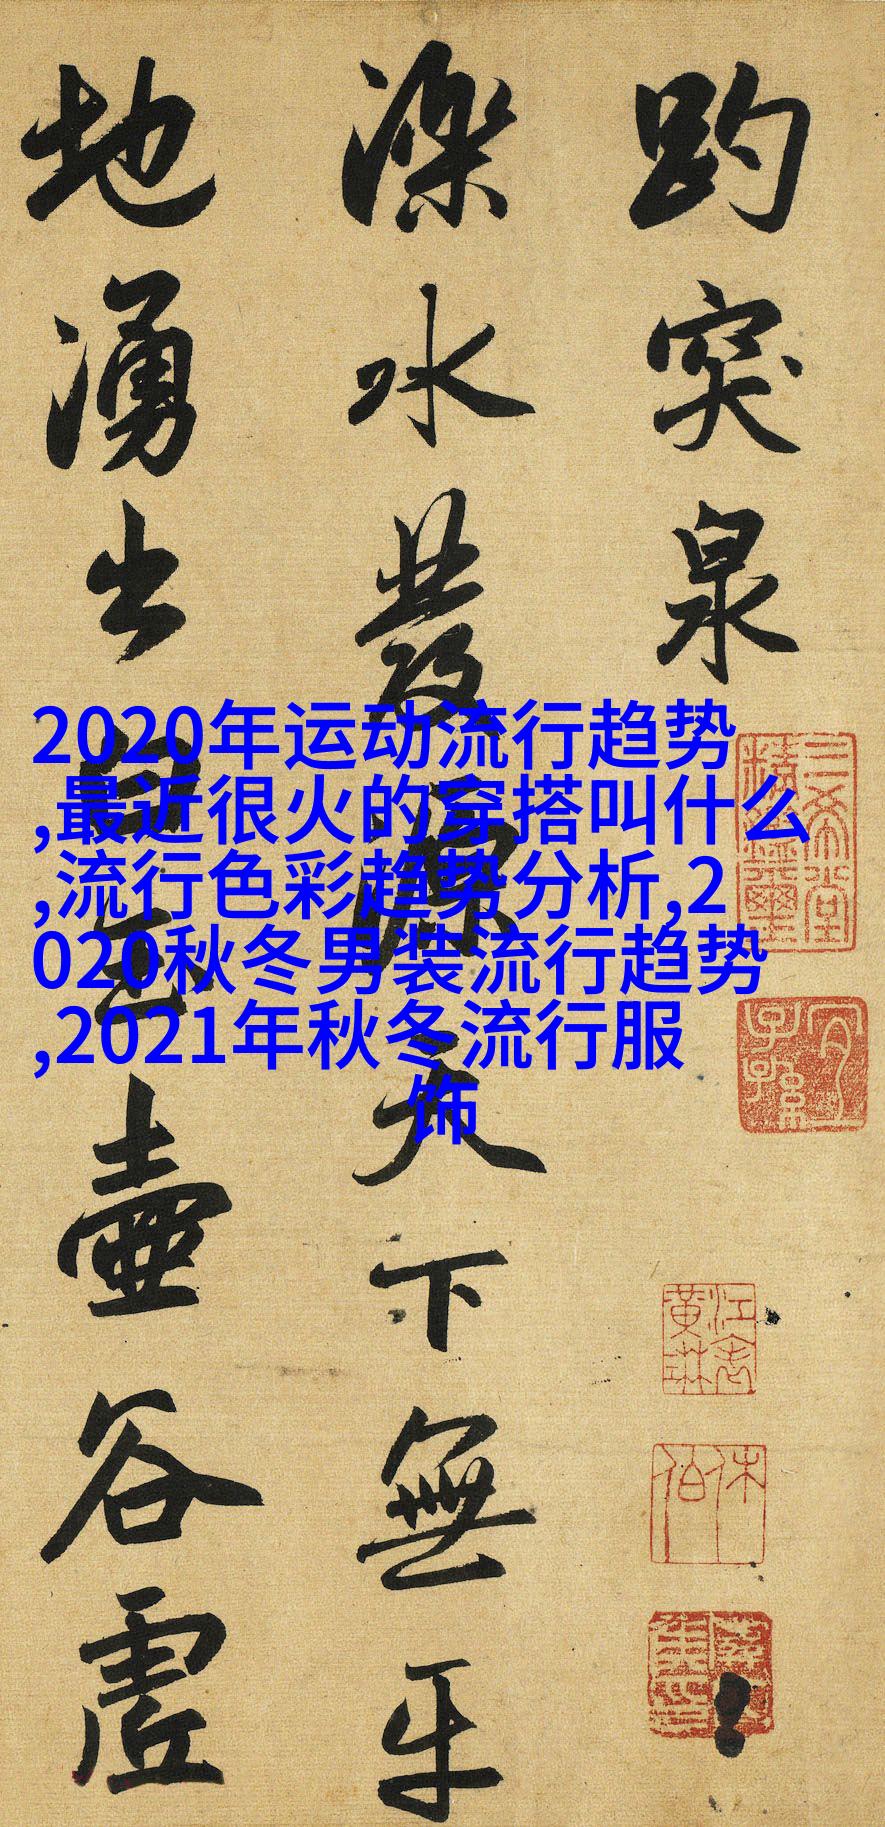 趵突泉
濼水發源天下無平
地湧出白玉壺谷虛
三希堂精鑑璽
宜子孫
江表黃琳
休伯
2020年运动流行趋势
,最近很火的穿搭叫什么
,流行色彩趋势分析,2
020秋冬男装流行趋势
,2021年秋冬流行服
饰